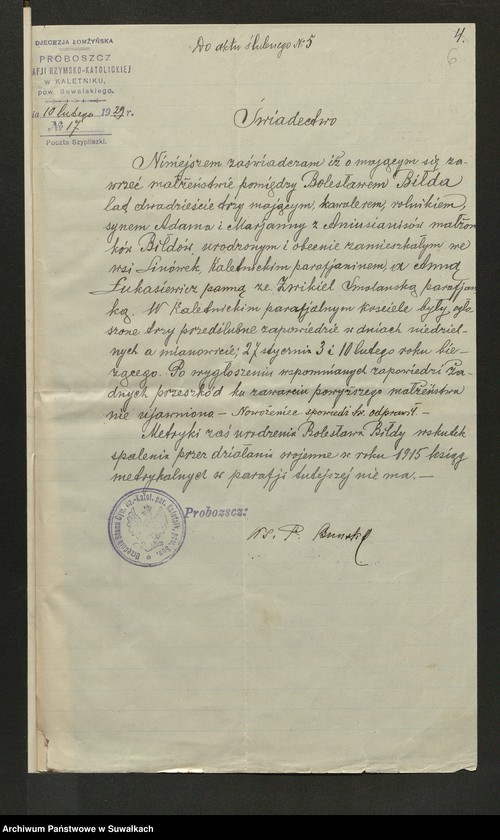 Do aktu ślubnego № 5
4.
6
DJECEZJA ŁOMŻYŃSKA
PROBOSZCZ
AFJI RZYMSKO-KATOLICKIEJ
W KALETNIKU,
pow. Suwalskiego.
ia 10 lutego 1929 r.
№ 17
Poczta Szypliszki.
Świadectwo
Niniejszem zaświadczam iż o mającym się za-
wrzeć małżeństwie pomiędzy Bolesławem Biłda
lat dwadzieście trzy mającym, kawalerem, rolnikiem,
synem Adama i Marjanny z Aniusianisów małżon
ków Biłdów, urodzonym i obecnie zamieszkałym we
wsi Linówek, Kaletnickim parafjaninem, a Anną
Łukasiewicz panną ze Żwikiel Smolanską parafjan
ką. W Kaletnickim parafjalnym kościele były ogło
szone trzy przedślubne zapowiedzie w dniach niedziel-
nych a mianowicie; 27 stycznia 3 i 10 lutego roku bie-
żącego. Po wygłoszeniu wspomnianych zapowiedzi ża-
dnych przeszkód ku zawarciu powyższego małżeństwa
nie ujawniono – Nowożeniec spowiedź św. odprawił. –
Metryki zaś urodzenia Bolesława Biłdy wskutek
spalenia przez działania wojenne w roku 1915 ksiąg
metrykalnych w parafji tutejszej nie ma. –
Proboszcz:
Ks. P.
Archiwum Państwowe w Suwałkach